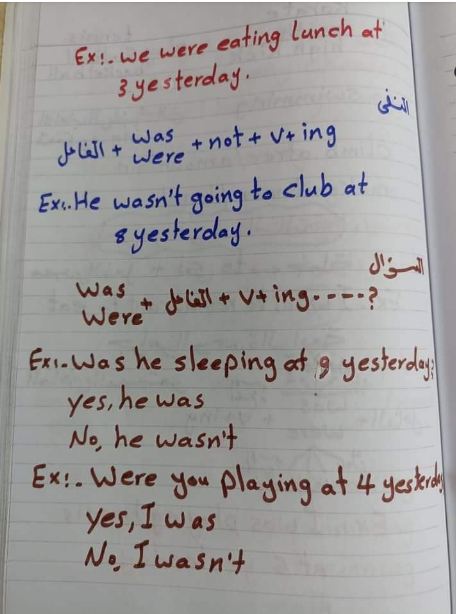 Ex:. we were eating lunch at
3 yesterday.
النفى
الفاعل + was
were + not + v + ing
Ex:. He wasn't going to club at
8 yesterday.
السؤال
was
were + الفاعل + v + ing ----?
Ex:. Was he sleeping at 9 yesterday?
yes, he was
No, he wasn't
Ex:. Were you playing at 4 yesterday
yes, I was
No, I wasn't